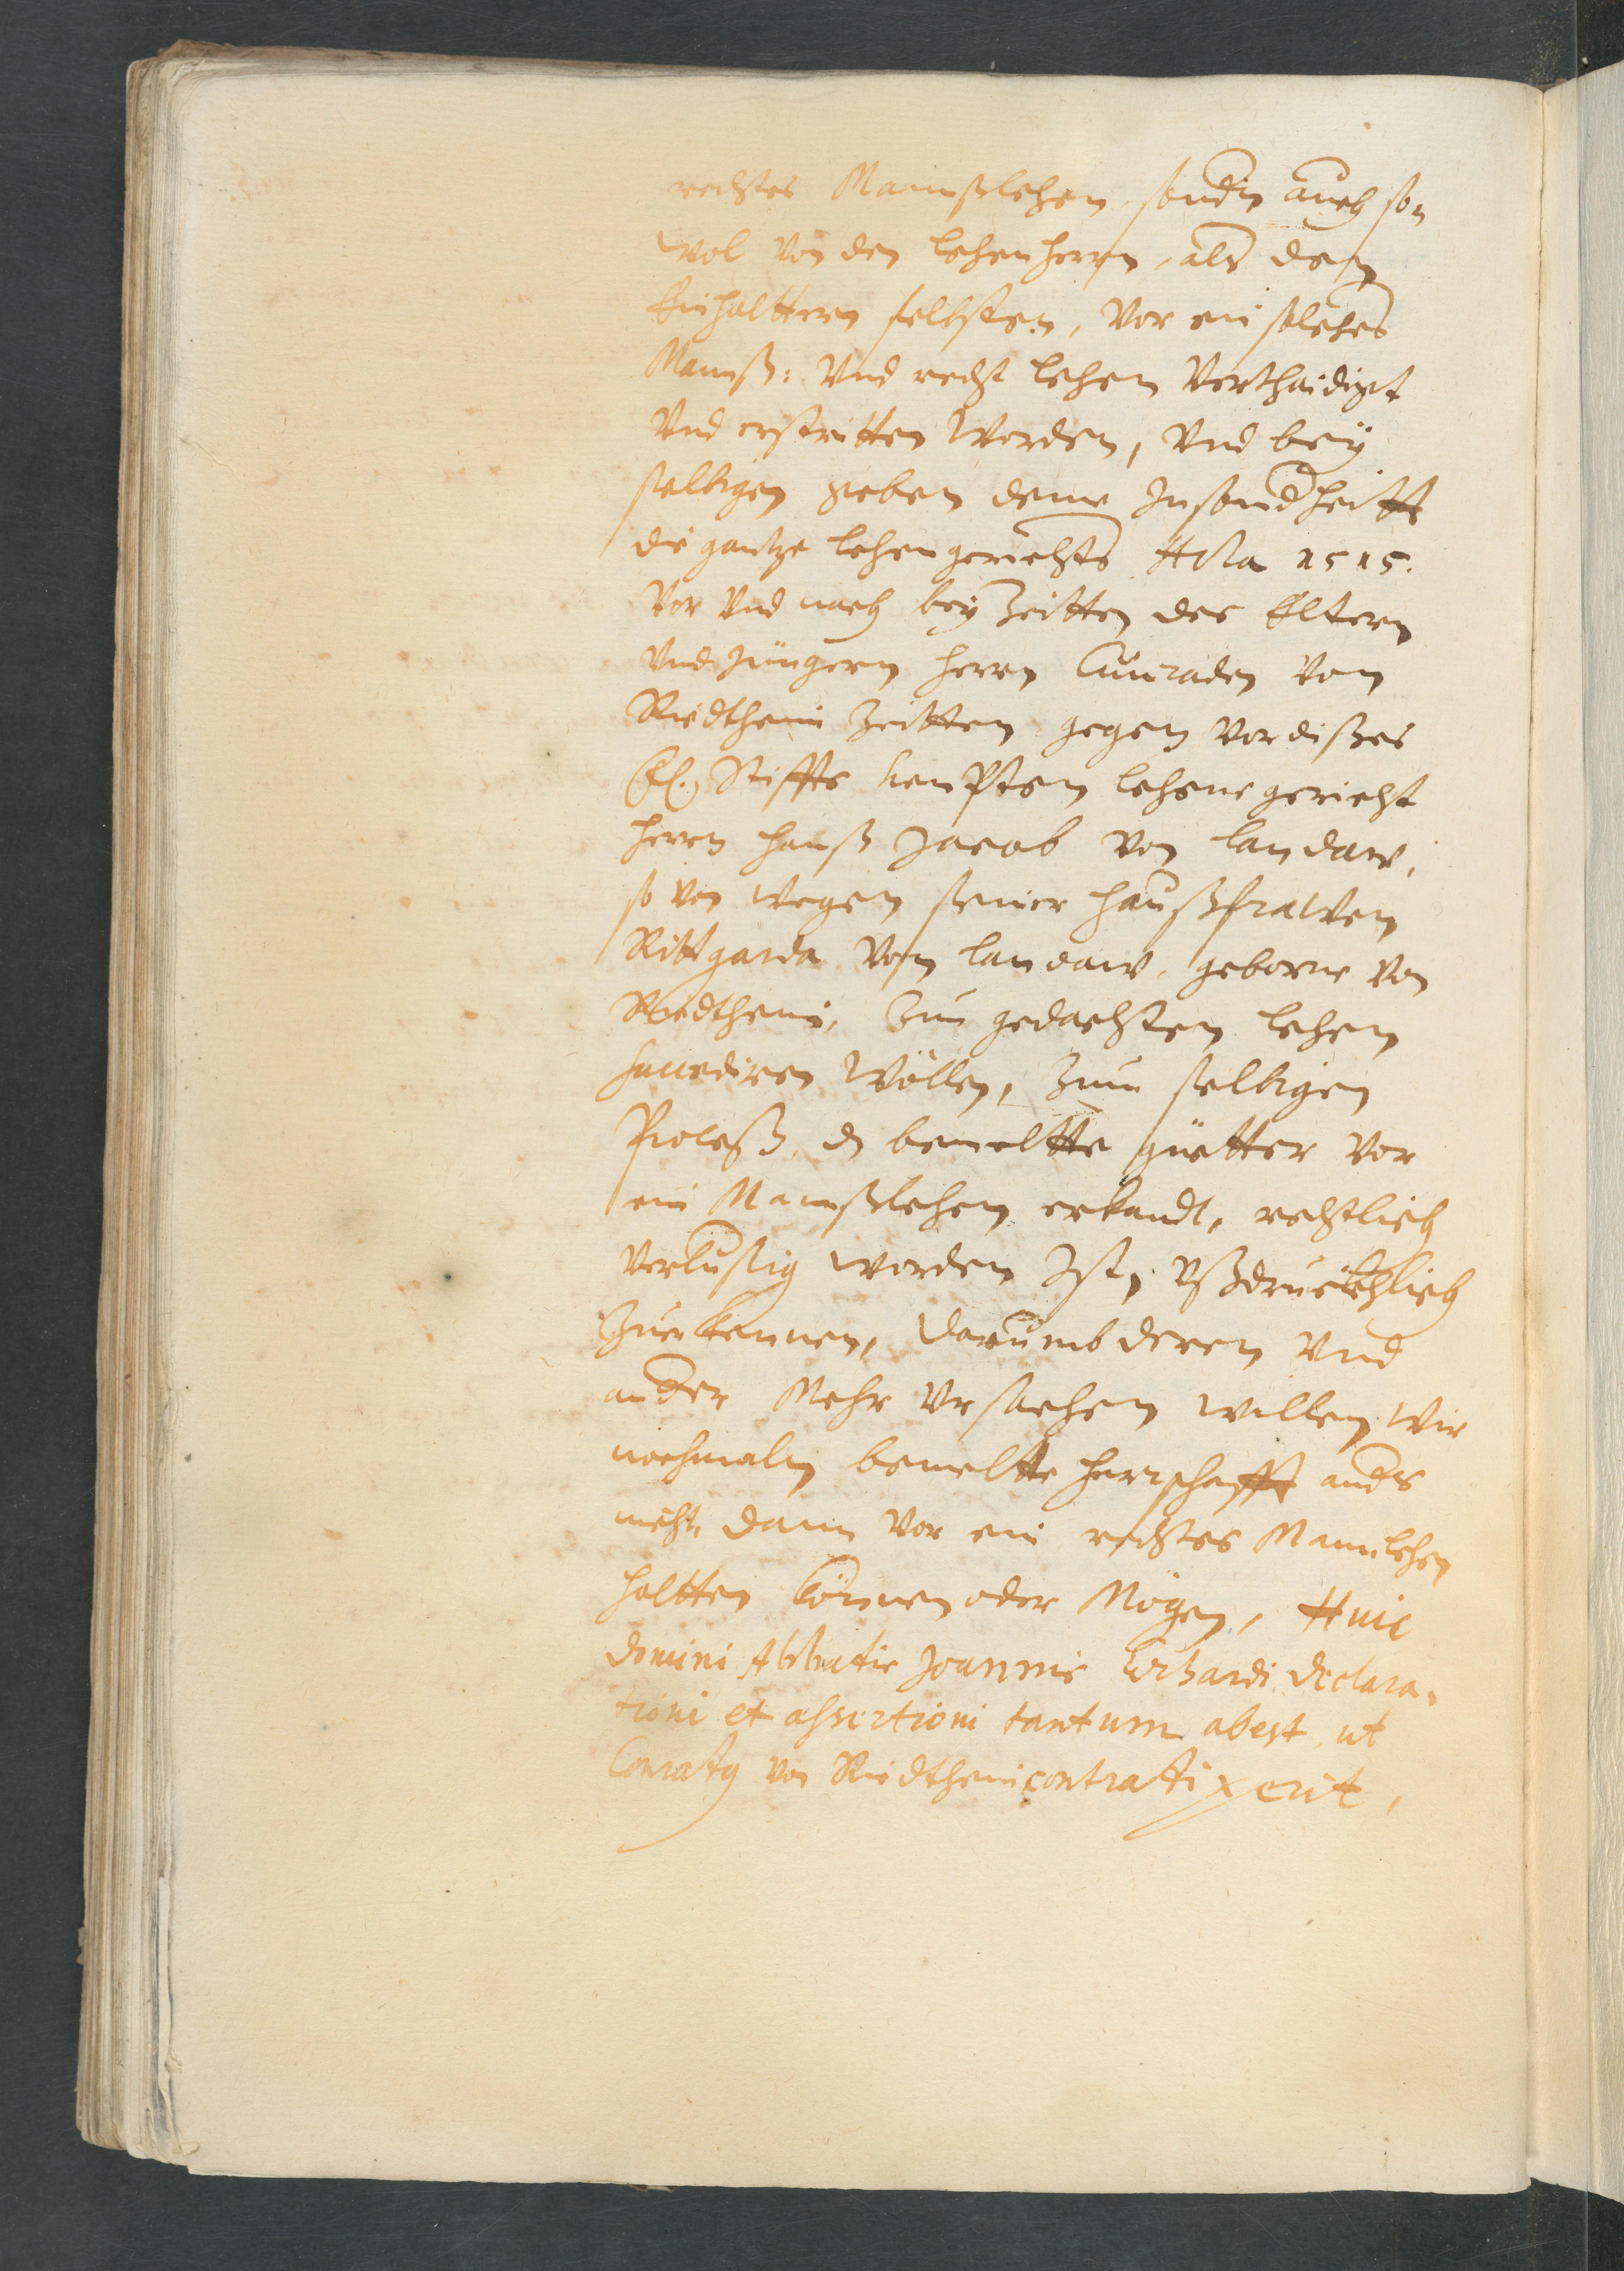 rechtes Mannßlehen, sondn auch so
wol von den lehenherrn, als den
Einhalttern selbsten, vor ein solches
Mannß: vnd recht lehen verthaidigt
vnd erstritten worden, vnd bey
selbigen geben deme Insondheitt
die gantze lehengerichts Acta 1515.
vor vnd nach bey Zeitten des Eltern
vnd Jüngern herrn Cunraden von
Riedtheim Zeitten gegen vor dißes
Stiffts kempten lehene gericht
herrn hanß Jacob von landaw,
so von wegen seiner haußfrawen
Rittgarda von landaw, geborne von
Riedtheim, Zun gedachten lehen
succediren wöllen, Zum selbigen
Proceß, d bemeltte güetter vor
ein Mannßlehen erkandt, rechtlich
verlustig worden Ist, vßdruckhlich
Zuerkennen, darumb deren vnd
ander Mehr vrsachen willen wir
nochmaln bemeltte herrschafft ands
nicht, dann vor ein rechtes Mannlehen
haltten können oder Mögen, Huic
domini Abbatis Joannis Erhardi declara-
tioni et assertioni tantum abest, ut
Conraty von Riedtheim contradixerit,